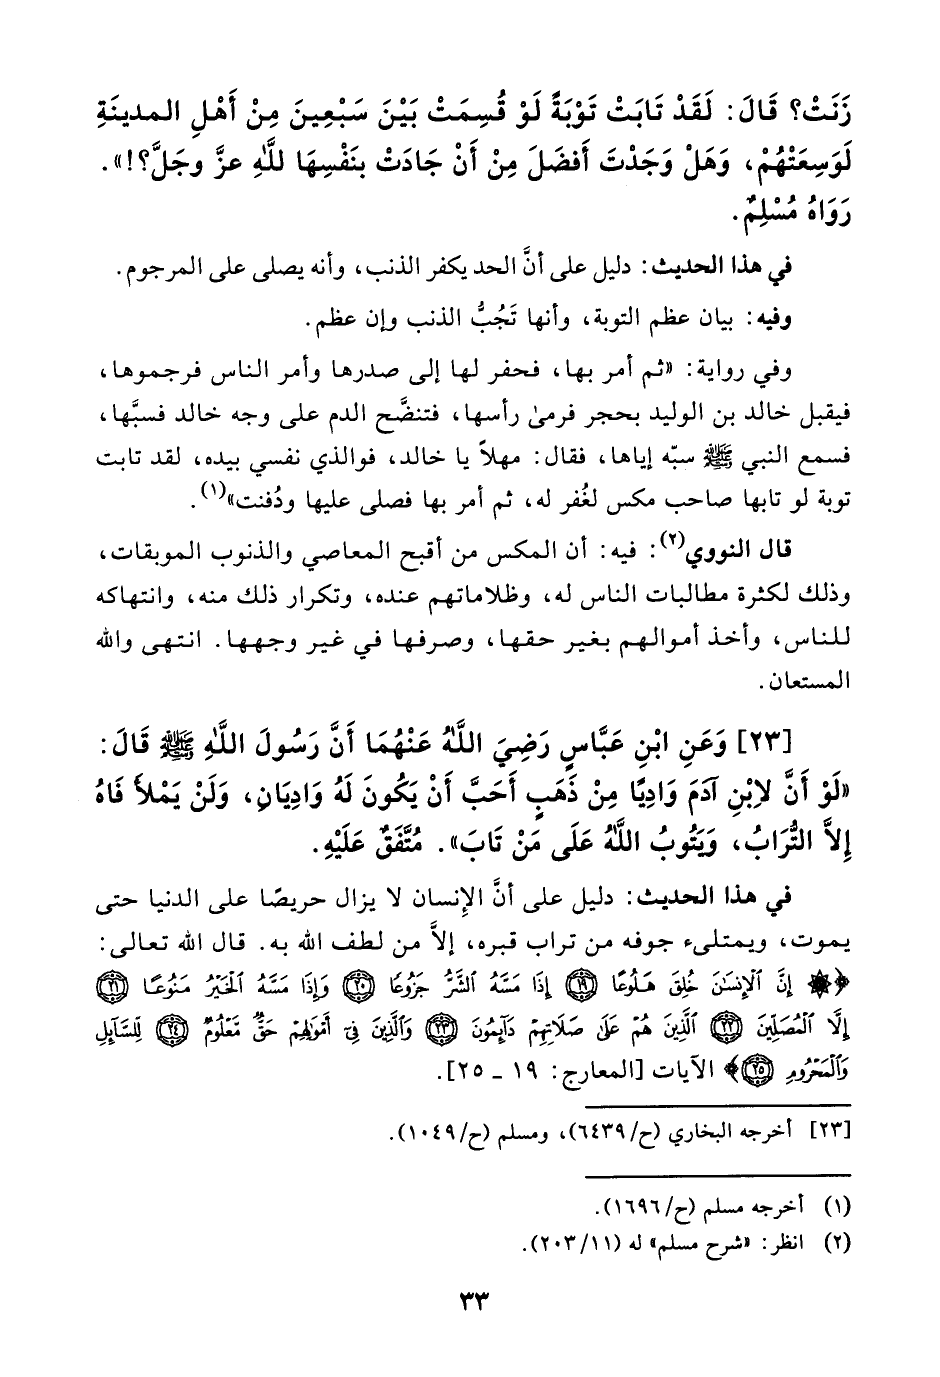 زَنَتْ؟ قَالَ: لَقَدْ تَابَتْ تَوْبَةً لَوْ قُسِمَتْ بَيْنَ سَبْعِينَ مِنْ أَهْلِ المدينَةِ
لَوَسِعَتْهُمْ، وَهَلْ وَجَدْتَ أَفضَلَ مِنْ أَنْ جَادَتْ بنَفْسِهَا للَّهِ عزَّ وجَلَّ؟!».
رَوَاهُ مُسْلِمٌ.
في هذا الحديث: دليل على أنَّ الحد يكفر الذنب، وأنه يصلى على المرجوم.
وفيه: بيان عظم التوبة، وأنها تَجُبُّ الذنب وإن عظم.
وفي رواية: «ثم أمر بها، فحفر لها إلى صدرها وأمر الناس فرجموها،
فيقبل خالد بن الوليد بحجر فرمىٰ رأسها، فتنضَّح الدم على وجه خالد فسبَّها،
فسمع النبي ﷺ سبّه إياها، فقال: مهلاً يا خالد، فوالذي نفسي بيده، لقد تابت
توبة لو تابها صاحب مكس لغُفر له، ثم أمر بها فصلى عليها ودُفنت»(١).
قال النووي(٢): فيه: أن المكس من أقبح المعاصي والذنوب الموبقات،
وذلك لكثرة مطالبات الناس له، وظلاماتهم عنده، وتكرار ذلك منه، وانتهاكه
للناس، وأخذ أموالهم بغير حقها، وصرفها في غير وجهها. انتهى والله
المستعان.
[٢٣] وَعَنِ ابْنِ عَبَّاسٍ رَضِيَ اللَّهُ عَنْهُمَا أَنَّ رَسُولَ اللَّهِ ﷺ قَالَ:
«لَوْ أَنَّ لابْنِ آدَمَ وَادِيًا مِنْ ذَهَبٍ أَحَبَّ أَنْ يَكُونَ لَهُ وَادِيَانِ، وَلَنْ يَمْلأَ فَاهُ
إِلاَّ التُّرَابُ، وَيَتُوبُ اللَّهُ عَلَى مَنْ تَابَ». مُتَّفَقٌ عَلَيْهِ.
في هذا الحديث: دليل على أنَّ الإنسان لا يزال حريصًا على الدنيا حتى
يموت، ويمتلىء جوفه من تراب قبره، إلاَّ من لطف الله به. قال الله تعالى:
﴿۞ إِنَّ ٱلْإِنسَٰنَ خُلِقَ هَلُوعًا ١٩ إِذَا مَسَّهُ ٱلشَّرُّ جَزُوعًا ٢٠ وَإِذَا مَسَّهُ ٱلْخَيْرُ مَنُوعًا ٢١
إِلَّا ٱلْمُصَلِّينَ ٢٢ ٱلَّذِينَ هُمْ عَلَىٰ صَلَاتِهِمْ دَآئِمُونَ ٢٣ وَٱلَّذِينَ فِىٓ أَمْوَٰلِهِمْ حَقٌّ مَّعْلُومٌ ٢٤ لِّلسَّآئِلِ
وَٱلْمَحْرُومِ ٢٥﴾ الآيات [المعارج: ١٩ ـ ٢٥].
[٢٣] أخرجه البخاري (ح/٦٤٣٩)، ومسلم (ح/١٠٤٩).
(١) أخرجه مسلم (ح/١٦٩٦).
(٢) انظر: «شرح مسلم» له (٢٠٣/١١).
٣٣